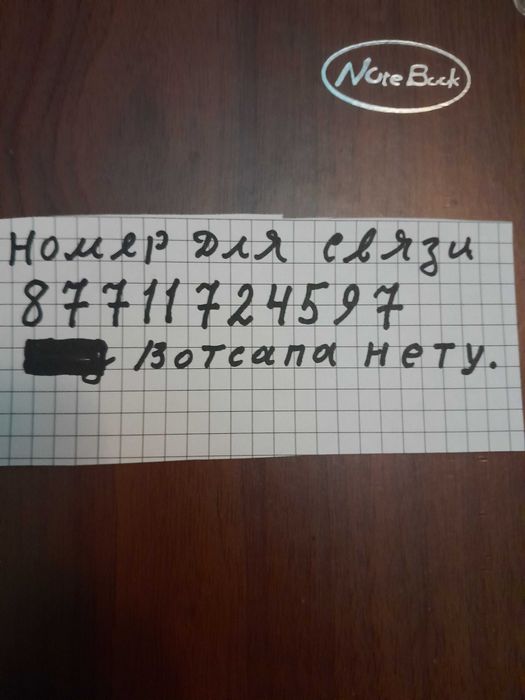 NoteBook
Номер для связи
87711724597
Вотсапа нету.